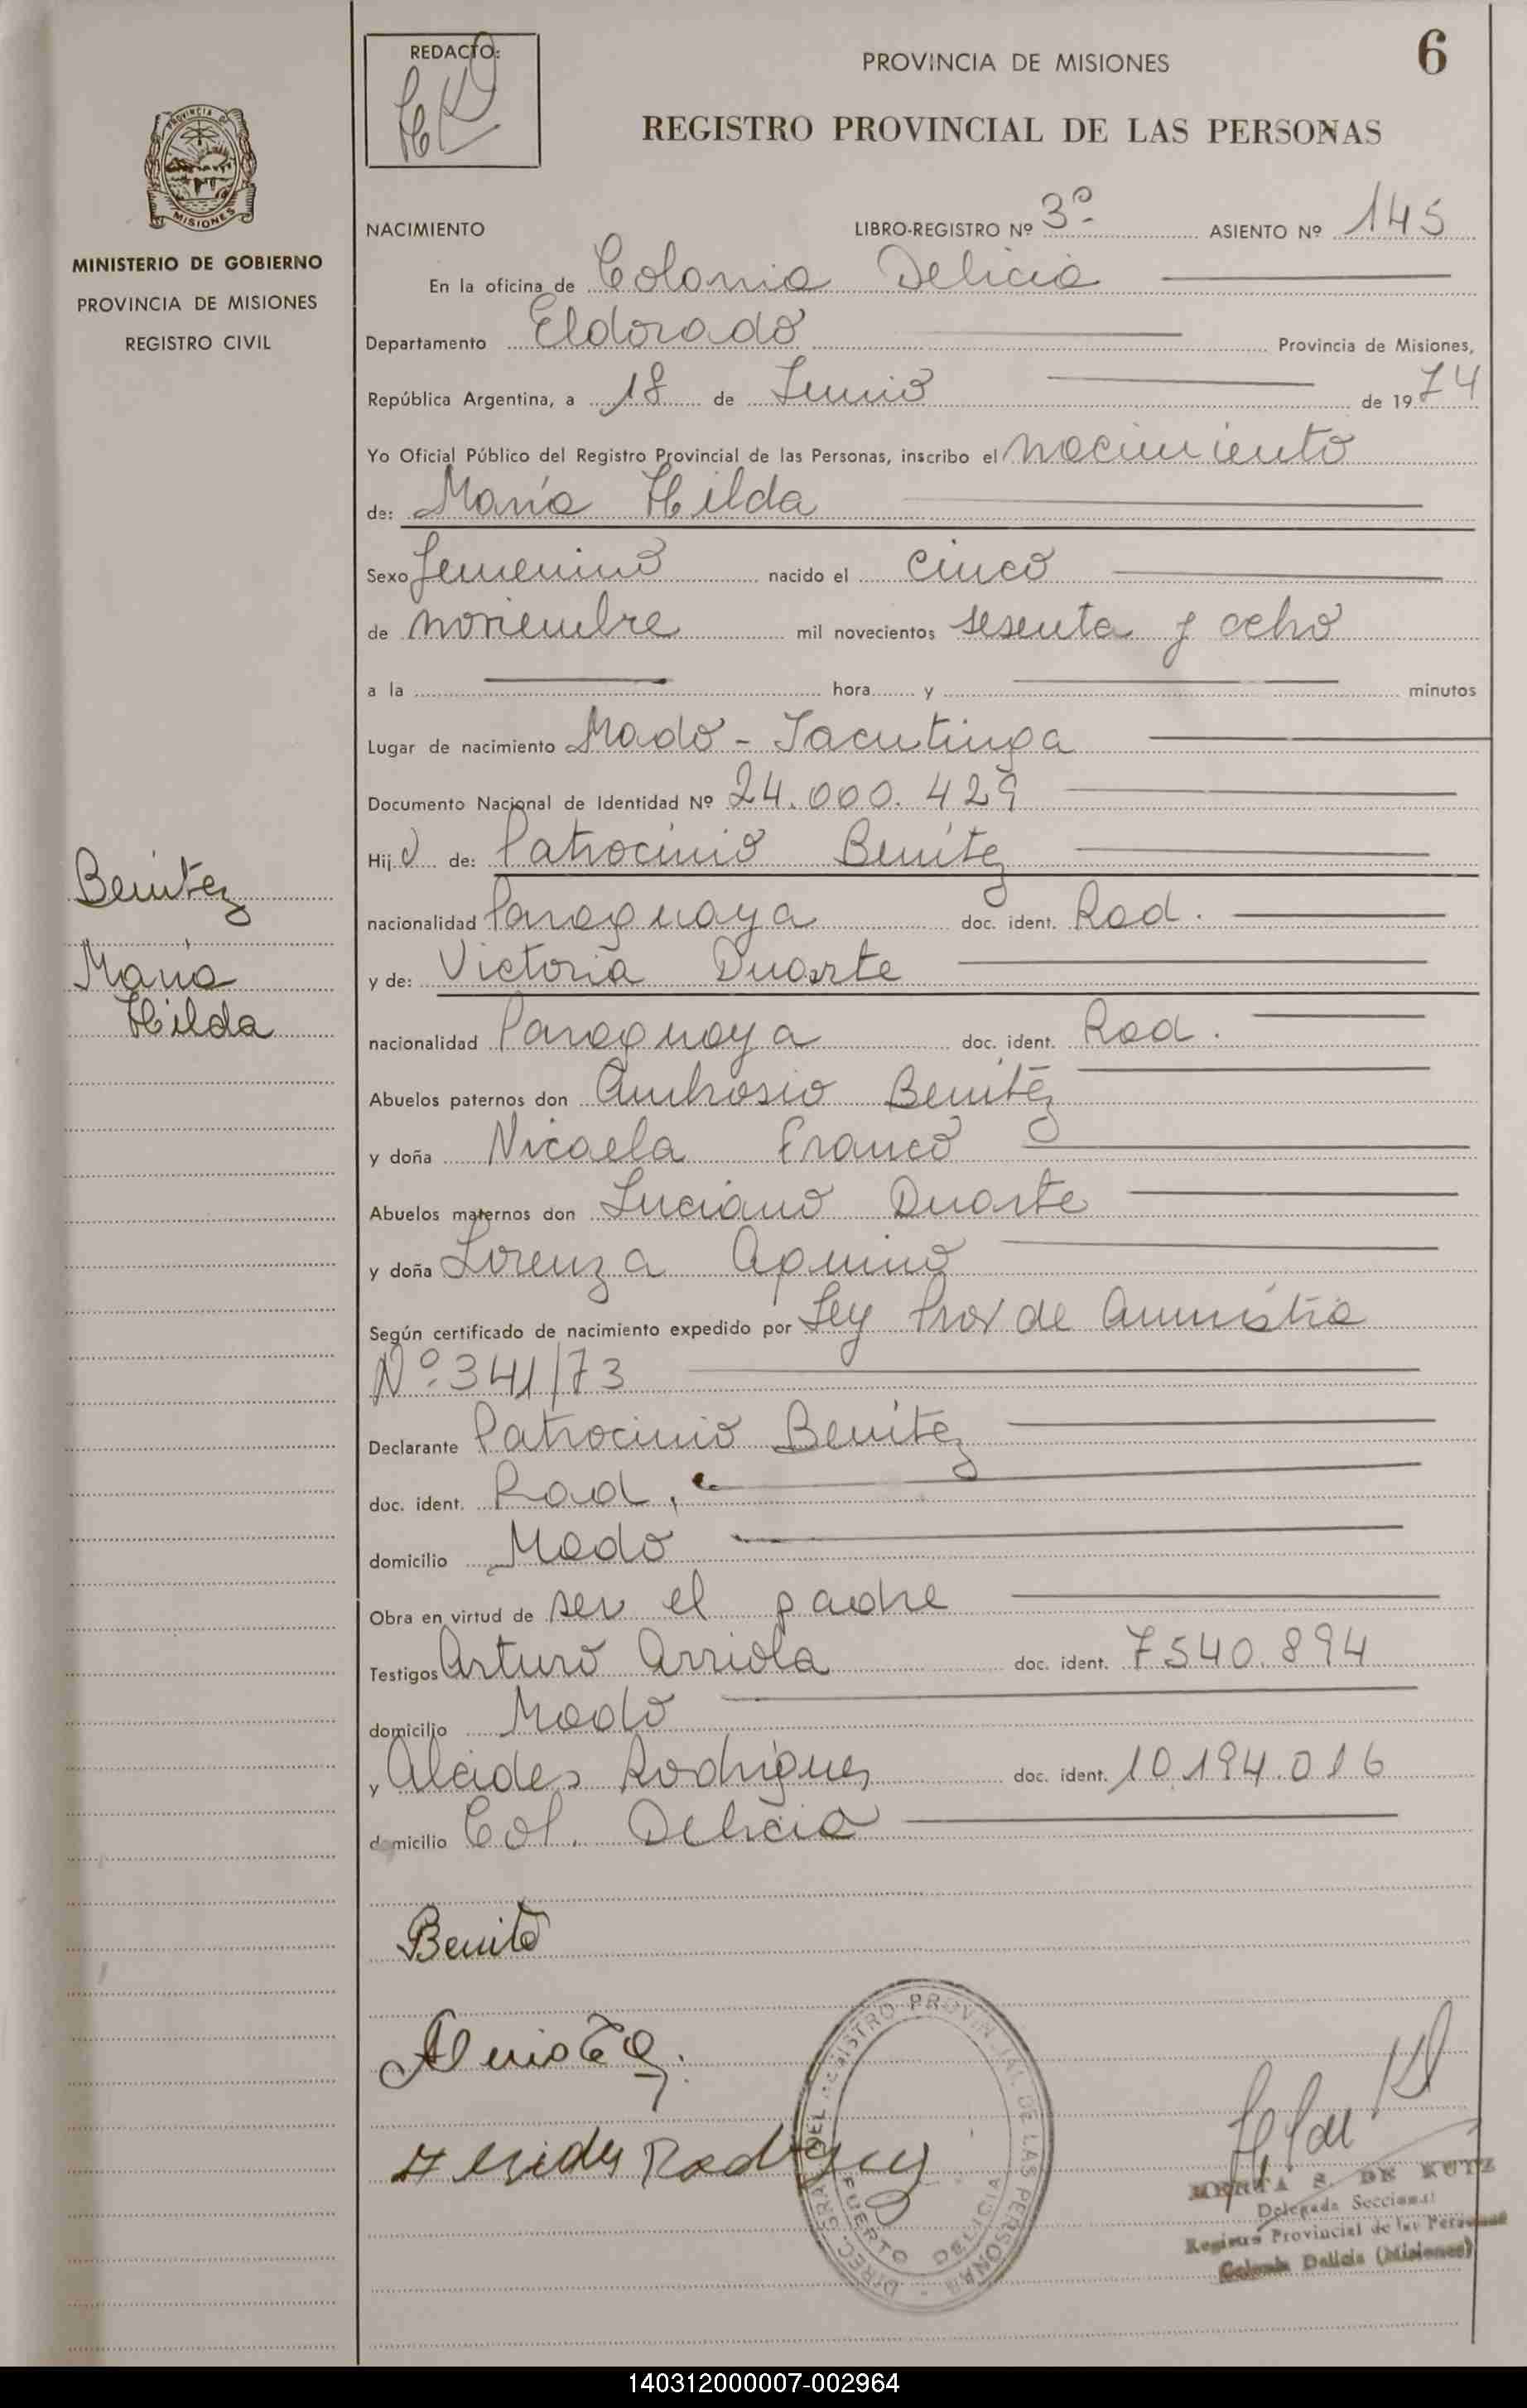 REDACTO:
PROVINCIA DE MISIONES
6
REGISTRO PROVINCIAL DE LAS PERSONAS
PROVINCIA DE
MISIONES
MINISTERIO DE GOBIERNO
PROVINCIA DE MISIONES
REGISTRO CIVIL
NACIMIENTO LIBRO-REGISTRO Nº 3º ASIENTO Nº 145
En la oficina de Colonia Delicia
Departamento Eldorado Provincia de Misiones,
República Argentina, a 18 de Junio de 1974
Yo Oficial Público del Registro Provincial de las Personas, inscribo el nacimiento
de: María Hilda
Sexo femenino nacido el cinco
de noviembre mil novecientos sesenta y ocho
a la hora y minutos
Lugar de nacimiento Mado - Jacutinga
Documento Nacional de Identidad Nº 24.000.429
Hij de: Patrocinio Benítez
nacionalidad Paraguaya doc. ident. Rad.
y de: Victoria Duarte
nacionalidad Paraguaya doc. ident. Rad.
Abuelos paternos don Ambrosio Benítez
y doña Nicaela Franco
Abuelos maternos don Luciano Duarte
y doña Lorenza Aquino
Según certificado de nacimiento expedido por Ley Prov de Amnistia
Nº 341/73
Declarante Patrocinio Benítez
doc. ident. Rad.
domicilio Mado
Obra en virtud de ser el padre
Testigos Arturo Arriola doc. ident. 7540.894
domicilio Mado
y Alcides Rodrígues doc. ident. 10.194.016
domicilio Col. Delicia
Benítez
María
Hilda
Benite
Rodrigues
DIREC. GRAL. DEL REGISTRO PROVINCIAL DE LAS PERSONAS
PUERTO DELICIA
S. DE KUTZ
Delegada Seccional
Registro Provincial de las Personas
Colonia Delicia (Misiones)
140312000007-002964